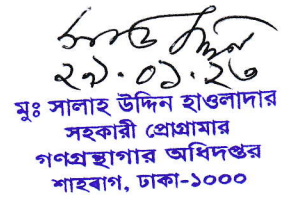 ২৯.০১.২৩
মুঃ সালাহ উদ্দিন হাওলাদার
সহকারী প্রোগ্রামার
গণগ্রন্থাগার অধিদপ্তর
শাহবাগ, ঢাকা-১০০০